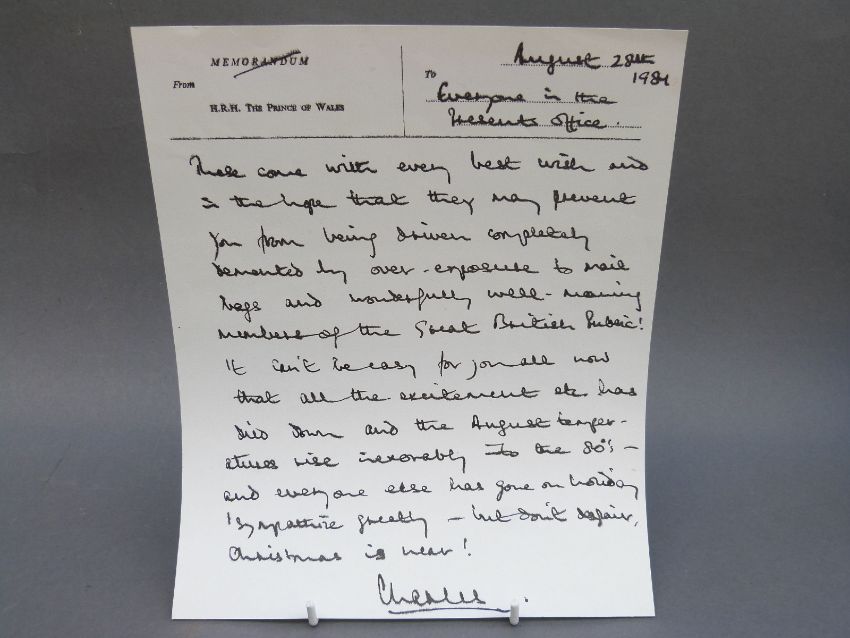 MEMORANDUM
From
H.R.H. THE PRINCE OF WALES
To
August 28th
1984
Everyone in the
Presents Office.
These come with every best wish and
in the hope that they may prevent
you from being driven completely
demented by over-exposure to mail
bags and wonderfully well-meaning
members of the Great British Public!
It can't be easy for you all now
that all the excitement etc. has
died down and the August temper-
atures rise inexorably to the 80's –
and everyone else has gone on holiday
I sympathize greatly – but don't despair,
Christmas is near!
Charles.